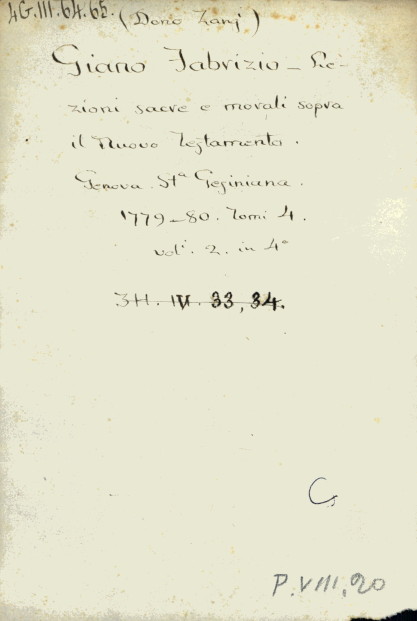 4G.III.64.65. (Dono Zanj)
Giano Fabrizio _ Le-
zioni sacre e morali sopra
il Nuovo Testamento.
Genova. Stª Gesiniana.
1779_80. Tomi 4.
vol.i 2. in 4º
3H. IV. 33, 34.
Cs
P.VIII.20